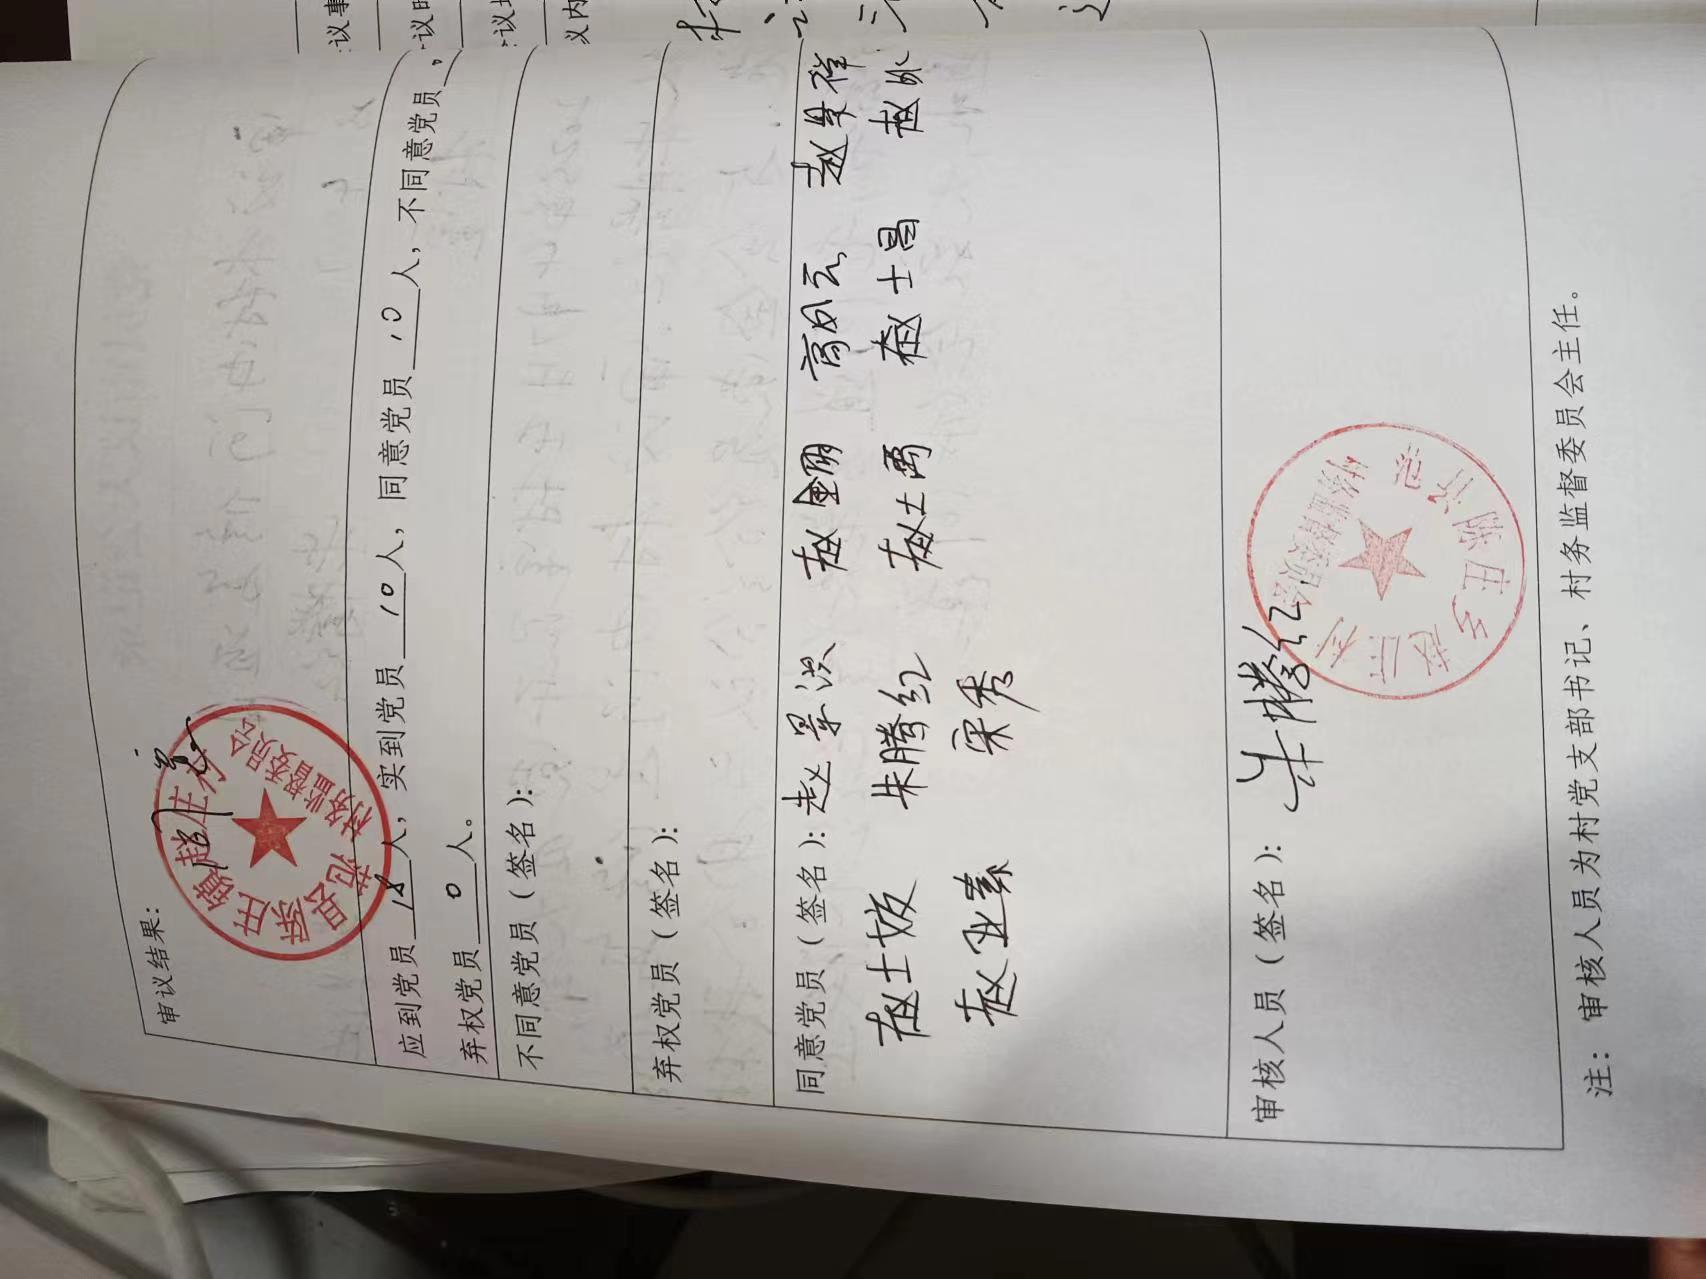 审议结果：
同意
应到党员 18 人，实到党员 10 人，同意党员 10 人，不同意党员 0
弃权党员 0 人。
不同意党员（签名）：
弃权党员（签名）：
同意党员（签名）：赵景洪 赵金朋 高凤云 赵学祥
赵士坡 朱腾红 赵士勇 赵士昌 赵冰
赵亚素 宋秀
审核人员（签名）：朱腾红
村务监督委员会
注：审核人员为村党支部书记、村务监督委员会主任。